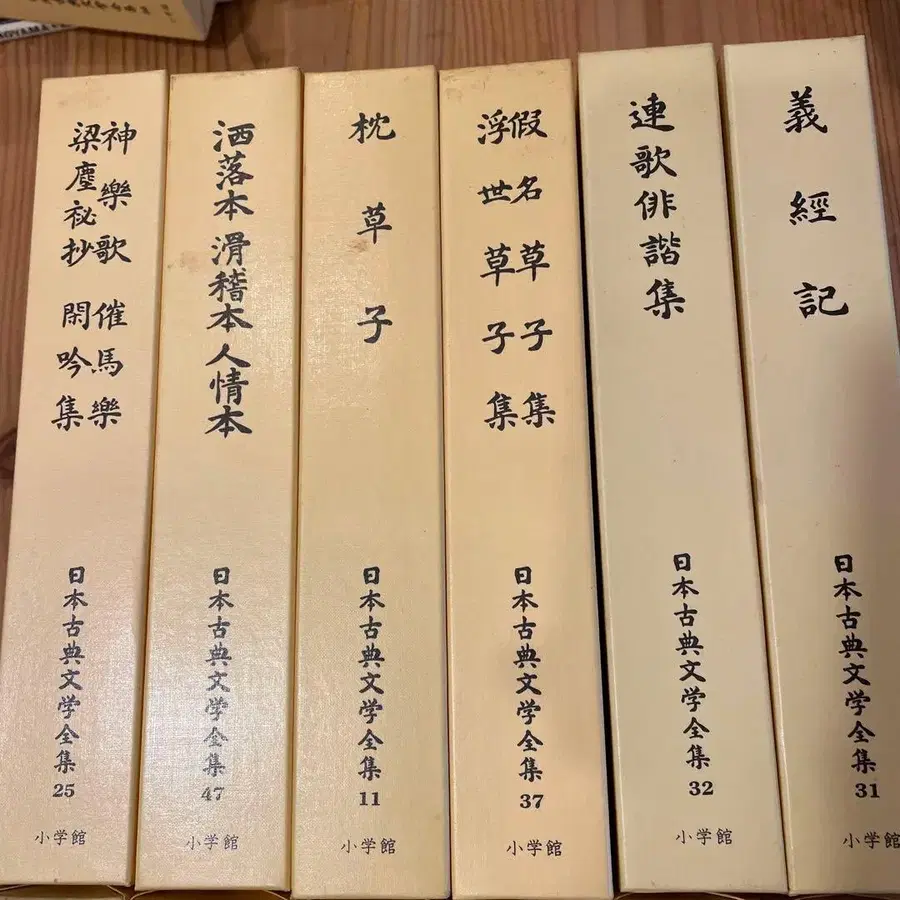 神樂歌 催馬樂
梁塵祕抄 閑吟集
日本古典文学全集 25
小学館
洒落本 滑稽本 人情本
日本古典文学全集 47
小学館
枕草子
日本古典文学全集 11
小学館
假名草子集
浮世草子集
日本古典文学全集 37
小学館
連歌俳諧集
日本古典文学全集 32
小学館
義經記
日本古典文学全集 31
小学館